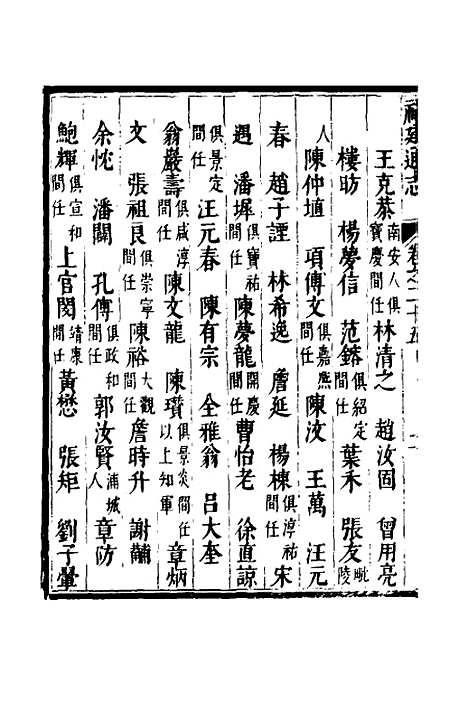 福建通志 卷之二十五
王克恭南安人俱寶慶間任林清之 趙汝固 曾用亮
樓昉 楊夢信 范鎔俱紹定間任葉禾 張友毗陵
人陳仲埴 項傳文俱嘉熙間任陳汶 王萬 汪元
春 趙子諲 林希逸 詹延 楊棟俱淳祐間任宋
遇 潘墀俱寶祐間任陳夢龍開慶間任曹怡老 徐直諒
俱景定間任汪元春 陳有宗 全雅翁 呂大奎
翁嚴壽俱咸淳間任陳文龍 陳瓚俱景炎間任以上知軍 章炳
文 張祖良俱崇寧間任陳裕大觀間任詹時升 謝黼
余忱 潘闢 孔傳俱政和間任郭汝賢浦城人章防
鮑輝俱宣和間任上官閔靖康間任黃懋 張矩 劉子翬